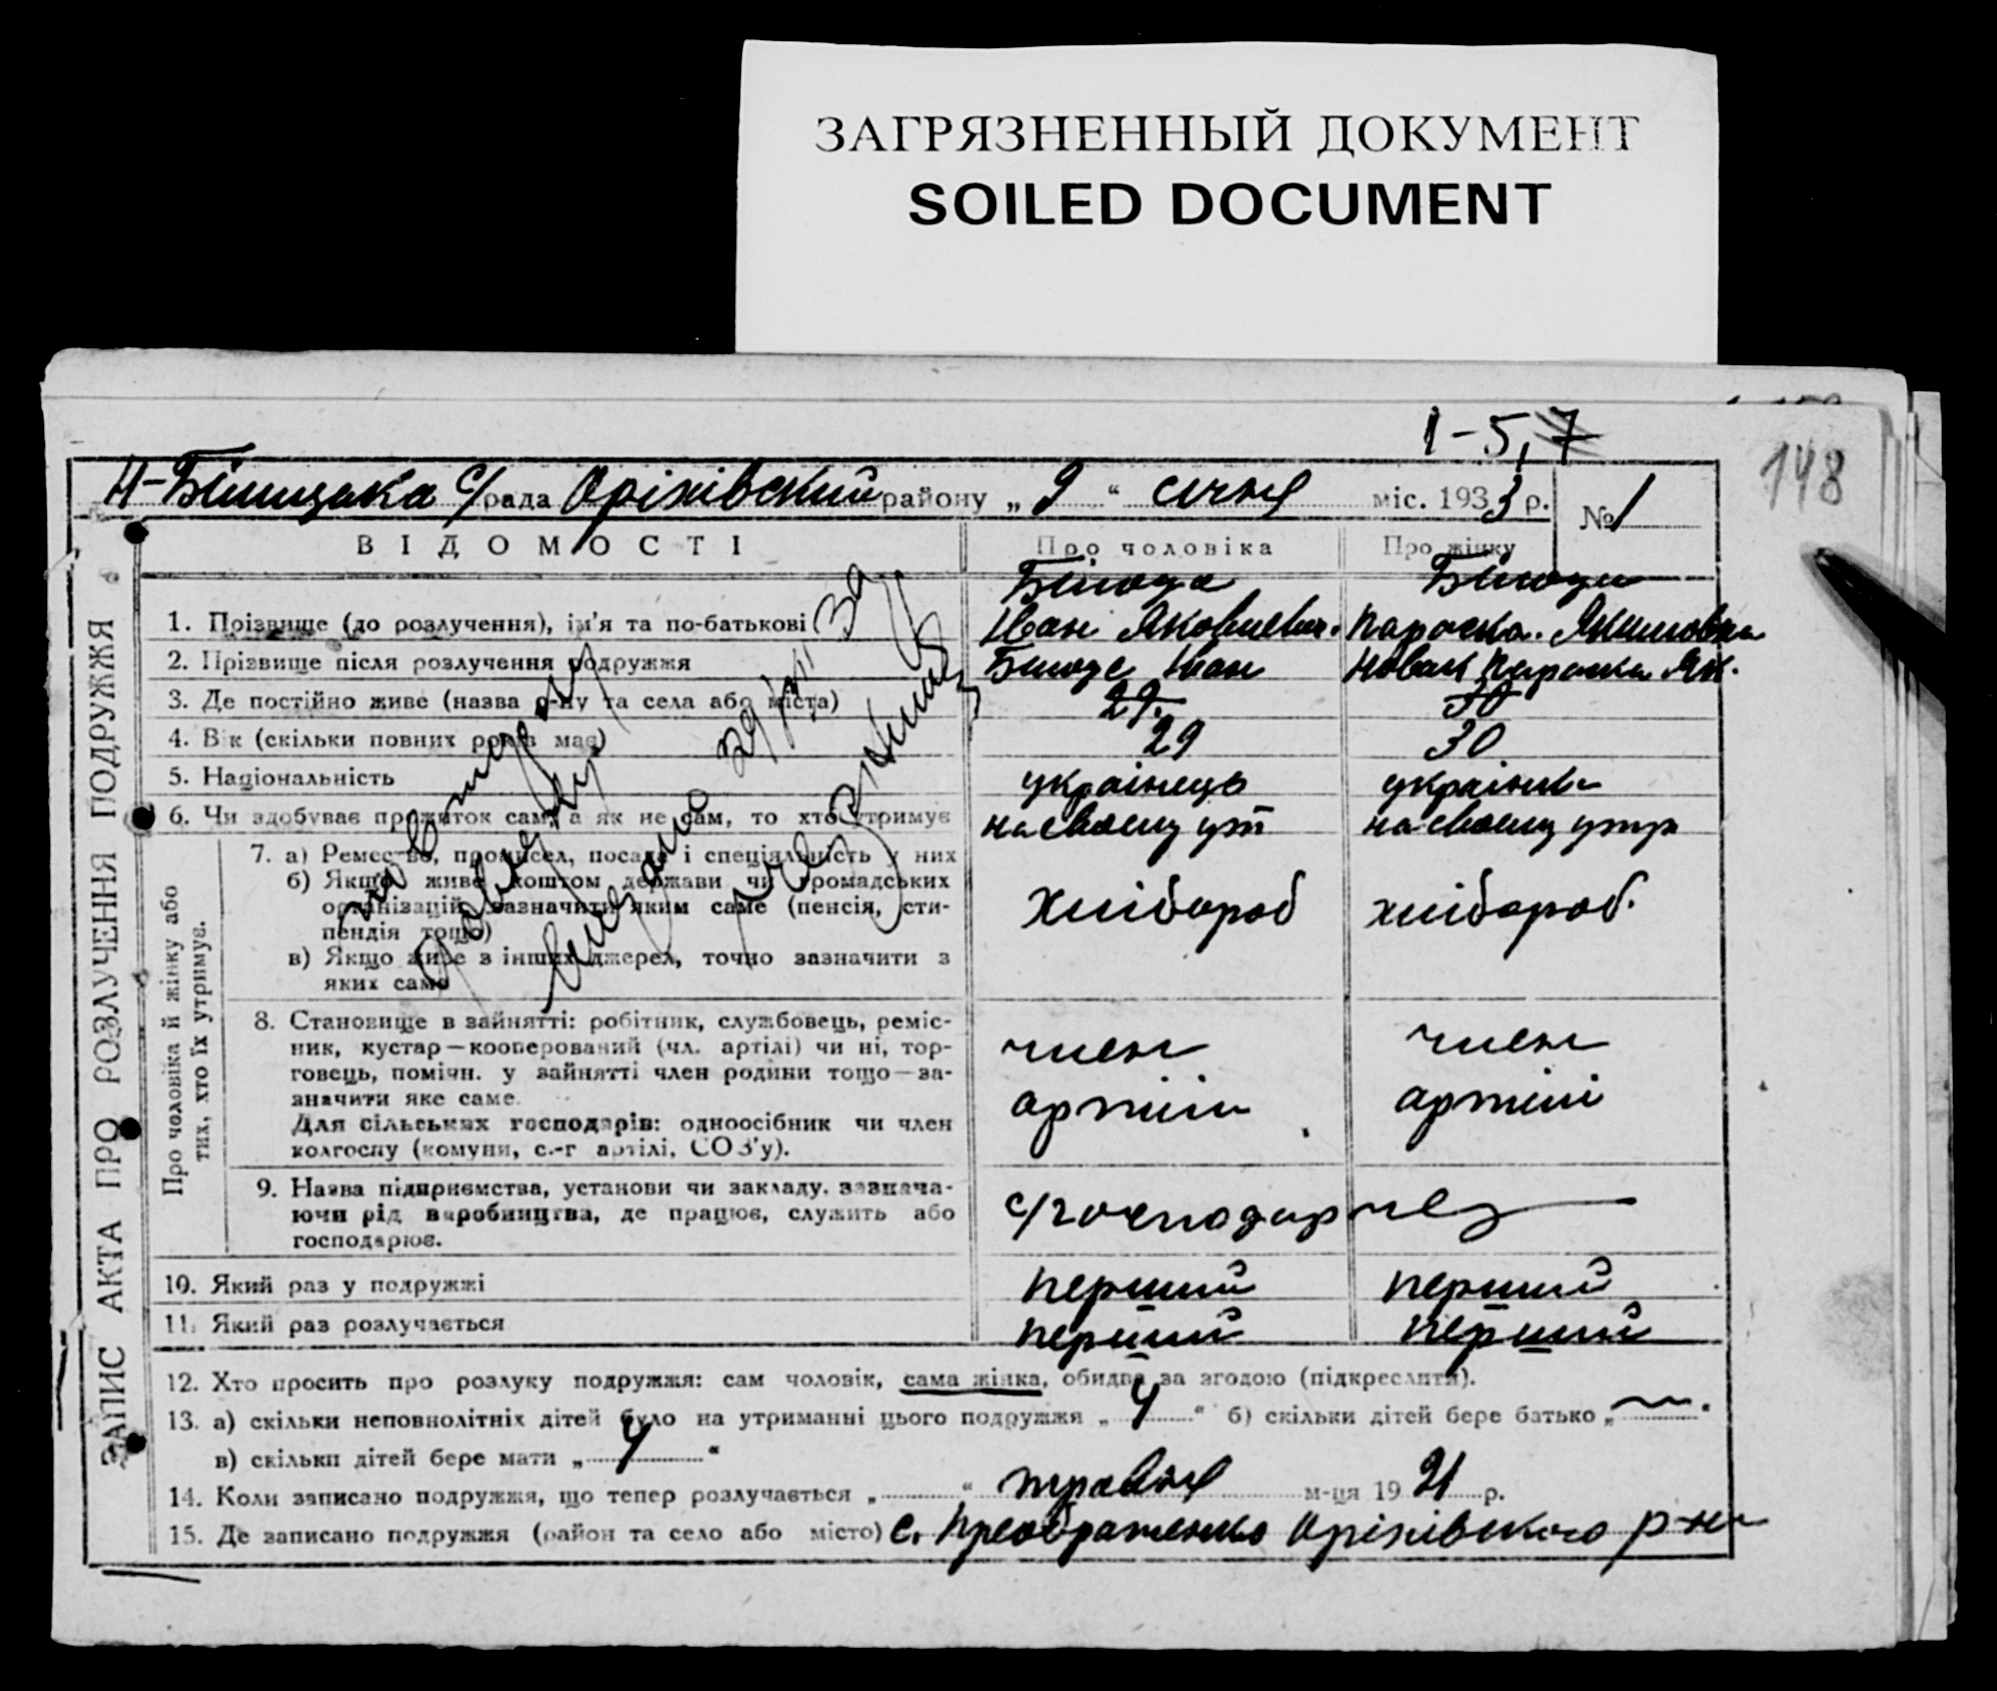 ЗАГРЯЗНЕННЫЙ ДОКУМЕНТ
SOILED DOCUMENT
1-5, 7
148
с/рада Оріхівский району „ 9 “ січня міс. 1933 р. № 1
ВІДОМОСТІ Про чоловіка Про жінку
1. Прізвище (до розлучення), ім'я та по-батькові Іван Яковлевич. Параска. Якимовна
2. Прізвище після розлучення подружжя Іван Новак Параска Як.
3. Де постійно живе (назва р-ну та села або міста) 29. 30
4. Вік (скільки повних років має) 29 30
5. Національність українець українка
6. Чи здобуває прожиток сам, а як не сам, то хто утримує на своему на своему
Про чоловіка й жінку або тих, хто їх утримує.
7. а) Ремество, промисел, посада і спеціяльність у них
б) Якщо живе коштом держави чи громадських
організацій, зазначити яким саме (пенсія, сти-
пендія тощо) хлібороб хлібороб.
в) Якщо живе з інших джерел, точно зазначити з
яких саме
8. Становище в зайнятті: робітник, службовець, реміс-
ник, кустар—кооперований (чл. артілі) чи ні, тор- член член
говець, помічн. у зайнятті член родини тощо—за-
значити яке саме. артіли артілі
Для сільських господарів: одноосібник чи член
колгоспу (комуни, с.-г артілі, СОЗ'у).
9. Назва підприємства, установи чи закладу, зазнача-
ючи рід виробництва, де працює, служить або
господарює.
10. Який раз у подружжі перший перший
11. Який раз розлучається перший перший
12. Хто просить про розлуку подружжя: сам чоловік, сама жінка, обидва за згодою (підкреслити).
13. а) скільки неповнолітніх дітей було на утриманні цього подружжя „ 4 “ б) скільки дітей бере батько „ — “
в) скільки дітей бере мати „ 4 “
14. Коли записано подружжя, що тепер розлучається „ “ травня м-ця 1921 р.
15. Де записано подружжя (район та село або місто) с. Преображенко Оріхівского р-ну
ЗАПИС АКТА ПРО РОЗЛУЧЕННЯ ПОДРУЖЖЯ